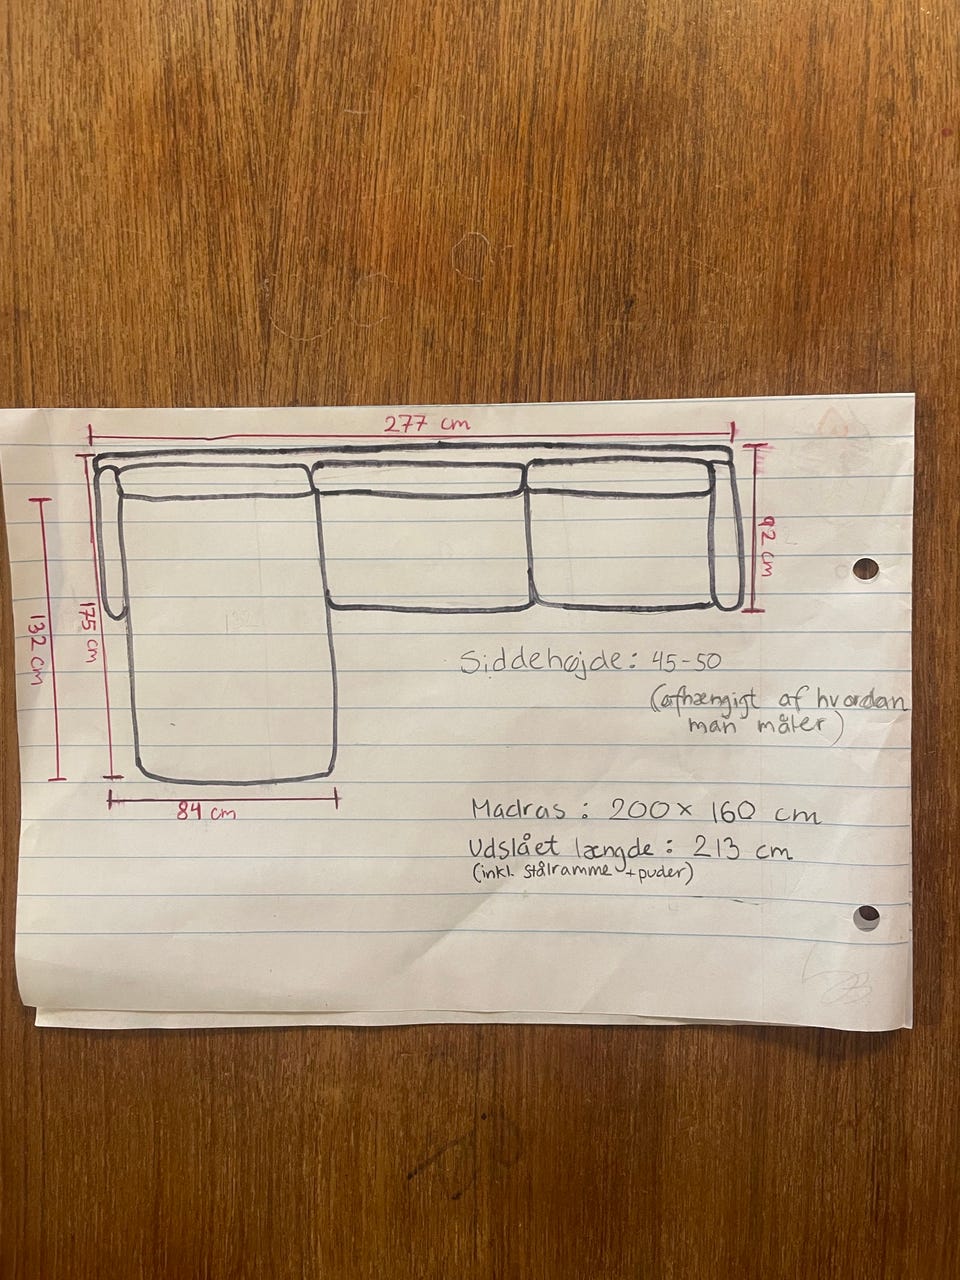 277 cm
92 cm
175 cm
132 cm
Siddehøjde: 45-50
(afhængigt af hvordan
man måler)
84 cm
Madras: 200 x 160 cm
Udslået længde: 213 cm
(inkl. stålramme + puder)